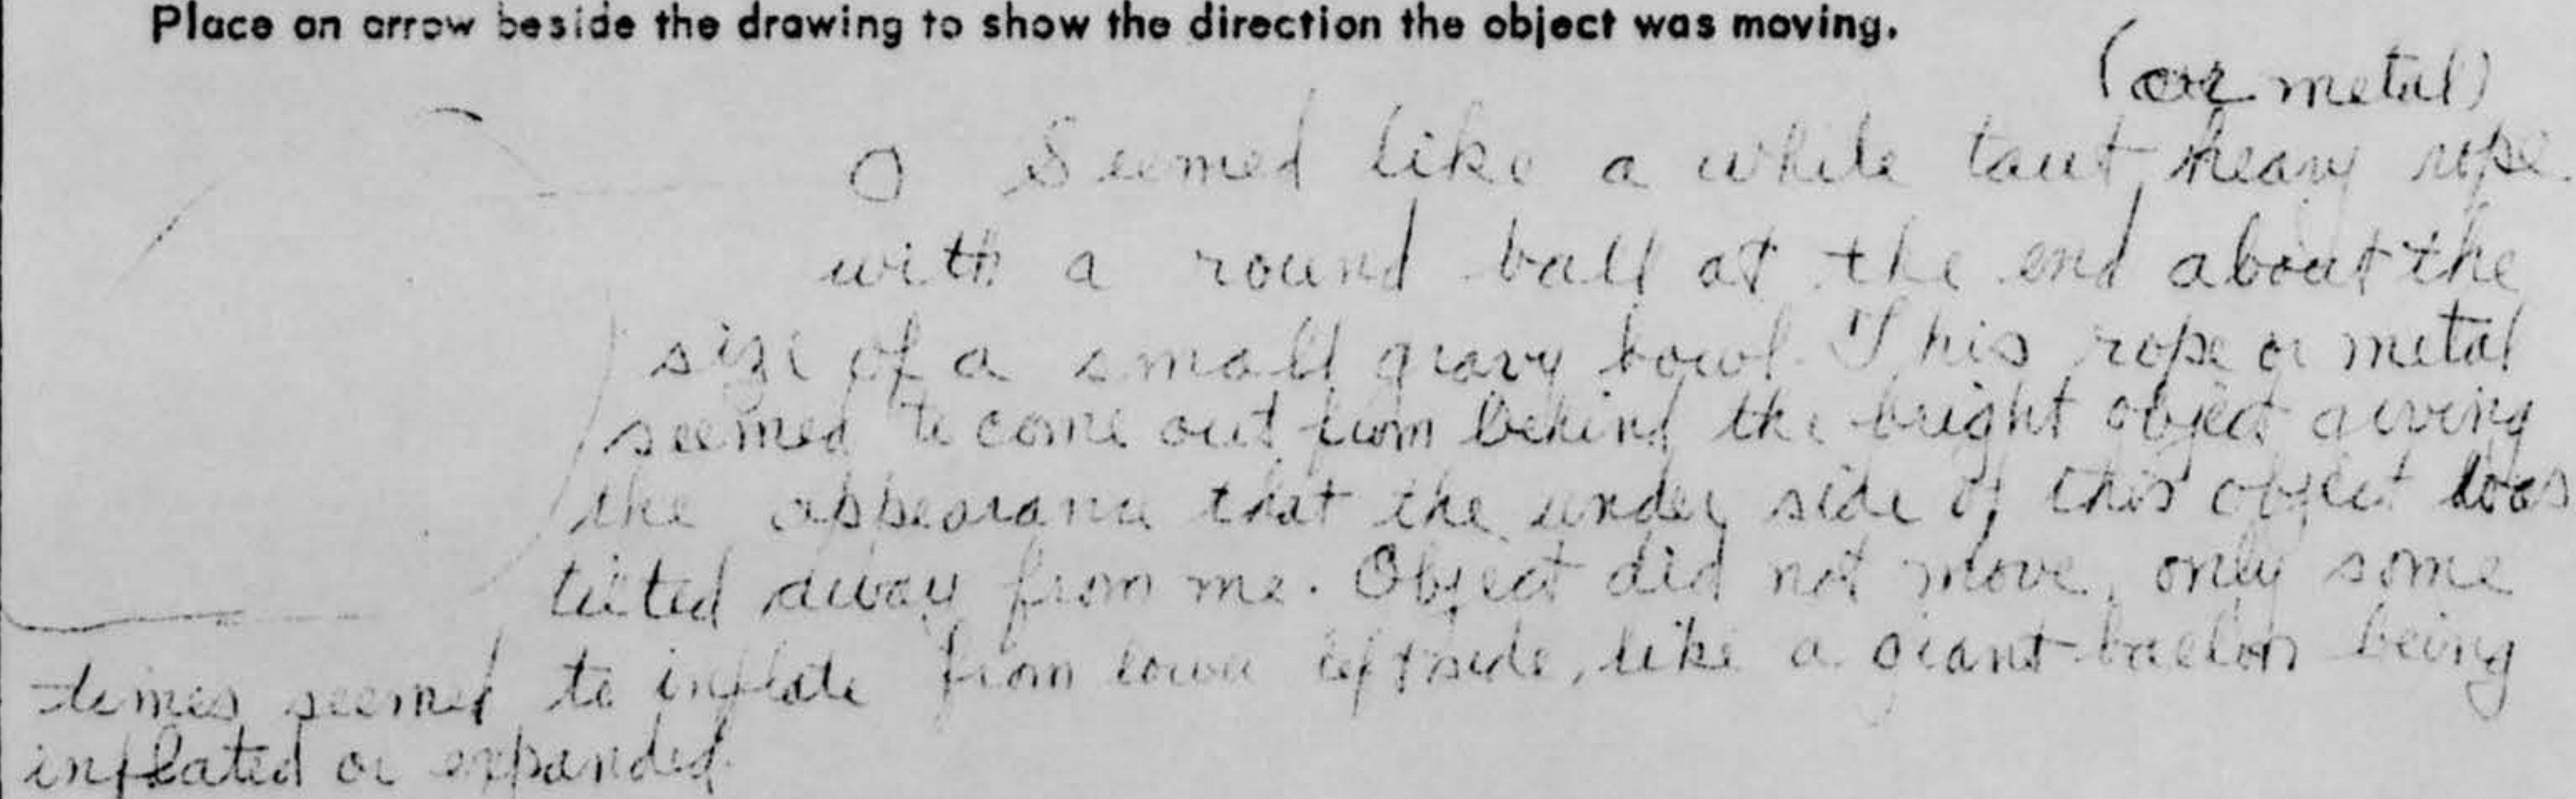 Place an arrow beside the drawing to show the direction the object was moving.
(or metal)
Seemed like a white taut, heavy rope
with a round ball at the end about the
size of a small gravy bowl. This rope or metal
seemed to come out from behind the bright object giving
the appearance that the under side of this object was
tilted away from me. Object did not move, only some
times seemed to inflate from lower left side, like a giant balloon being
inflated or expanded.